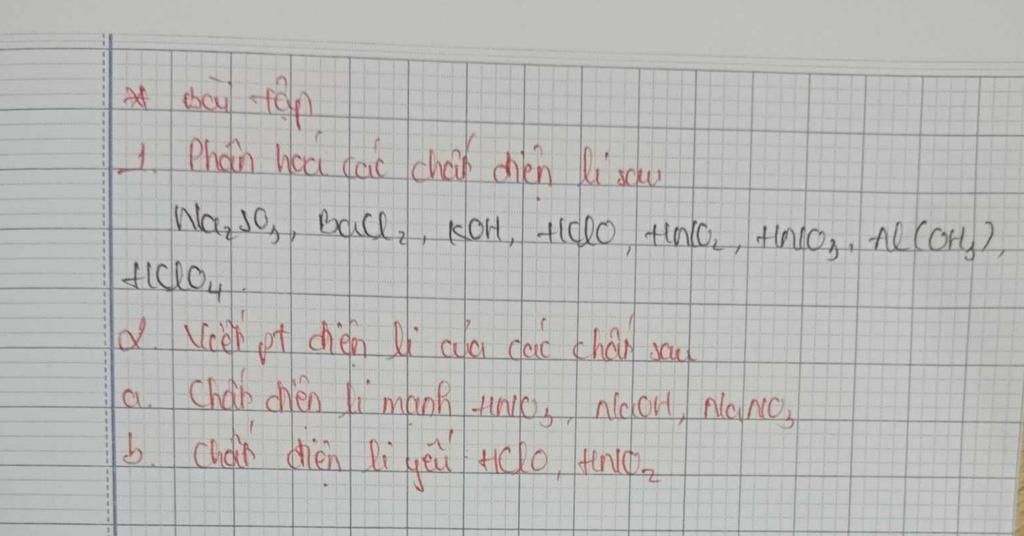 * Bài tập
1. Phân hoá các chất điện li sau
Na₂SO₃, BaCl₂, KOH, HClO, HNO₂, HNO₃, Al(OH₃),
HClO₄
2. Viết pt điện li của các chất sau
a. Chất điện li mạnh HNO₃, NaOH, NaNO₃
b. Chất điện li yếu HClO, HNO₂